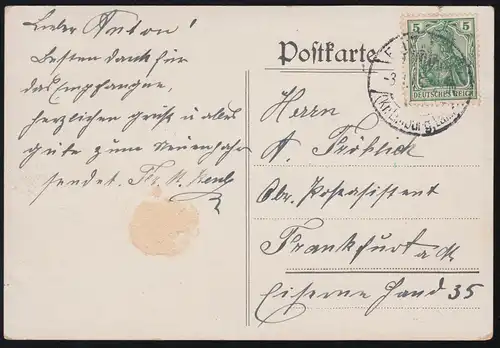 Lieber Anton!
Besten dank für
das Empfangne,
herzlichen gruß u alles
gute zum Neuenjahr
sendet.
Postkarte
5 5
DEUTSCHES REICH
Herrn
A. Fröhlich
Obr. Postasistent
Frankfurt a.M.
Eiserne Hand 35